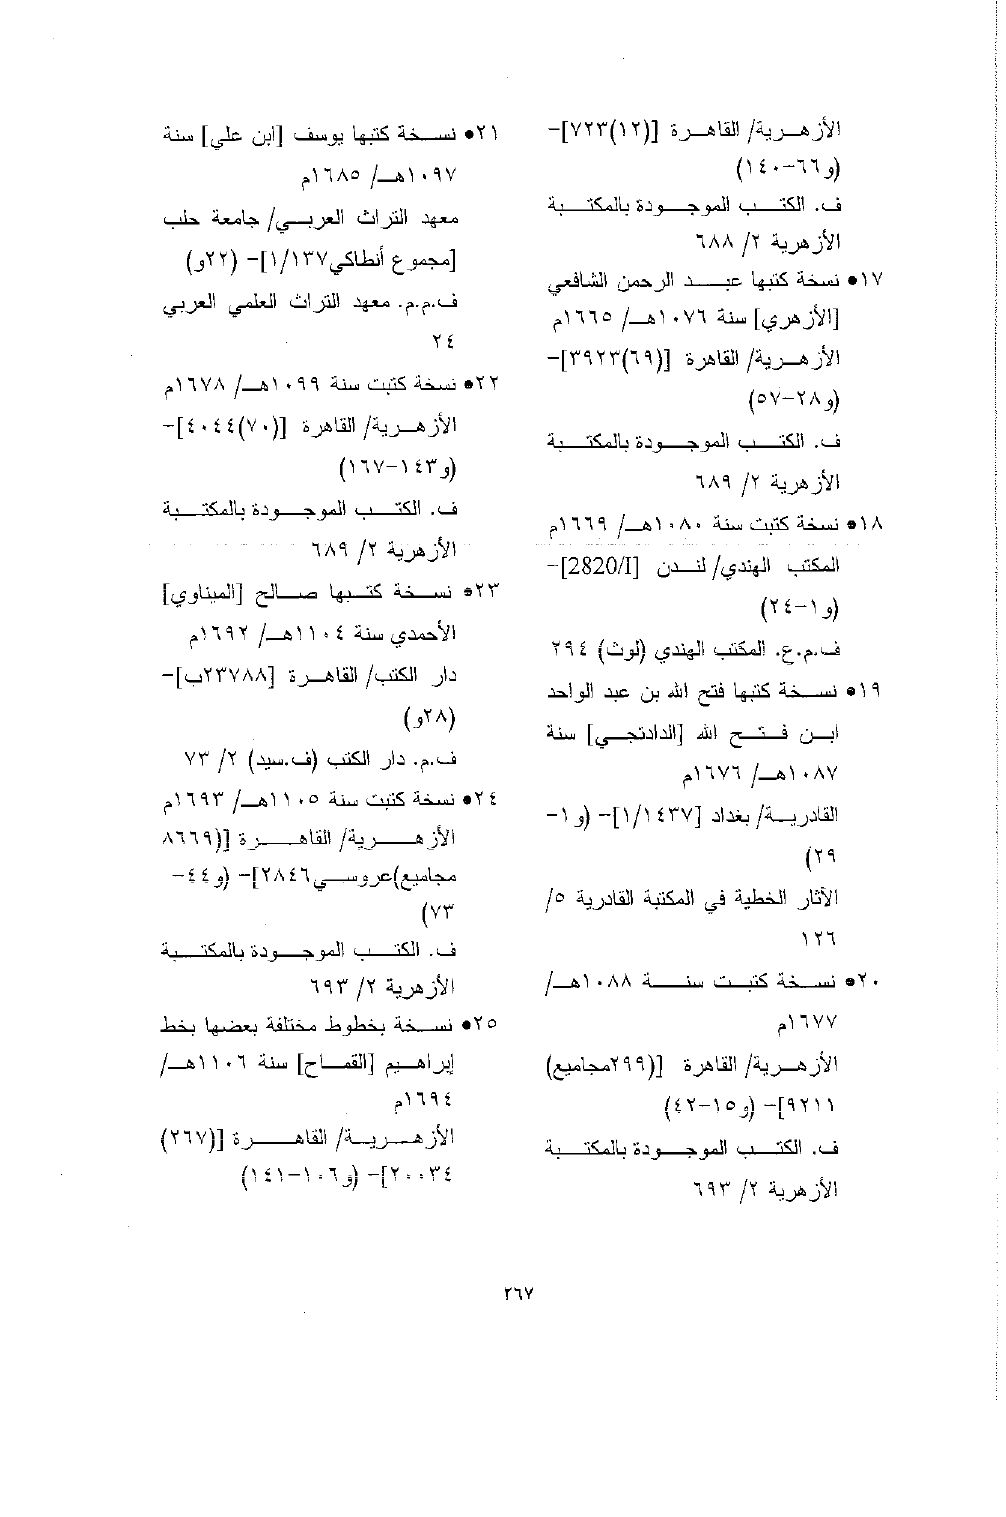 الأزهرية/ القاهرة [(١٢)٧٢٣]-
(و٦٦-١٤٠)
ف. الكتب الموجودة بالمكتبة
الأزهرية ٢/ ٦٨٨
١٧• نسخة كتبها عبد الرحمن الشافعي
[الأزهري] سنة ١٠٧٦هـ/ ١٦٦٥م
الأزهرية/ القاهرة [(٦٩)٣٩٢٣]-
(و٢٨-٥٧)
ف. الكتب الموجودة بالمكتبة
الأزهرية ٢/ ٦٨٩
١٨• نسخة كتبت سنة ١٠٨٠هـ/ ١٦٦٩م
المكتب الهندي/ لندن [2820/I]-
(و١-٢٤)
ف.م.ع. المكتب الهندي (لوث) ٢٩٤
١٩• نسخة كتبها فتح الله بن عبد الواحد
ابن فتح الله [الدادنجي] سنة
١٠٨٧هـ/ ١٦٧٦م
القادرية/ بغداد [١/١٤٣٧]- (و١-
٢٩)
الآثار الخطية في المكتبة القادرية ٥/
١٢٦
٢٠• نسخة كتبت سنة ١٠٨٨هـ/
١٦٧٧م
الأزهرية/ القاهرة [(٢٩٩مجاميع)
٩٢١١]- (و١٥-٤٢)
ف. الكتب الموجودة بالمكتبة
الأزهرية ٢/ ٦٩٣
٢١• نسخة كتبها يوسف [ابن علي] سنة
١٠٩٧هـ/ ١٦٨٥م
معهد التراث العربي/ جامعة حلب
[مجموع أنطاكي١/١٣٧]- (٢٢و)
ف.م.م. معهد التراث العلمي العربي
٢٤
٢٢• نسخة كتبت سنة ١٠٩٩هـ/ ١٦٧٨م
الأزهرية/ القاهرة [(٧٠)٤٠٤٤]-
(و١٤٣-١٦٧)
ف. الكتب الموجودة بالمكتبة
الأزهرية ٢/ ٦٨٩
٢٣• نسخة كتبها صالح [الميناوي]
الأحمدي سنة ١١٠٤هـ/ ١٦٩٢م
دار الكتب/ القاهرة [٢٣٧٨٨ب]-
(٢٨و)
ف.م. دار الكتب (ف.سيد) ٢/ ٧٣
٢٤• نسخة كتبت سنة ١١٠٥هـ/ ١٦٩٣م
الأزهرية/ القاهرة [(٨٦٦٩
مجاميع)عروسي٢٨٤٦]- (و٤٤-
٧٣)
ف. الكتب الموجودة بالمكتبة
الأزهرية ٢/ ٦٩٣
٢٥• نسخة بخطوط مختلفة بعضها بخط
إبراهيم [القماح] سنة ١١٠٦هـ/
١٦٩٤م
الأزهرية/ القاهرة [(٢٦٧)
٢٠٠٣٤]- (و١٠٦-١٤١)
٢٦٧